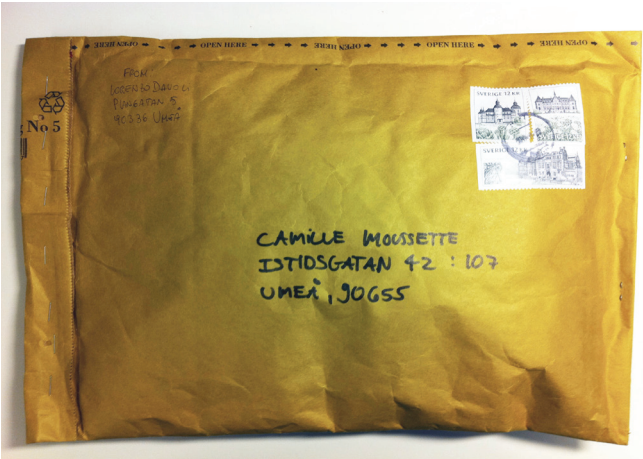 OPEN HERE OPEN HERE OPEN HERE OPEN HERE OPEN HERE
FROM
90336 UMEÅ
No 5
SVERIGE 12 KR
SVERIGE 12 KR
CAMILLE MOUSSETTE
ISTIDSGATAN 42 : 107
UMEÅ, 90655